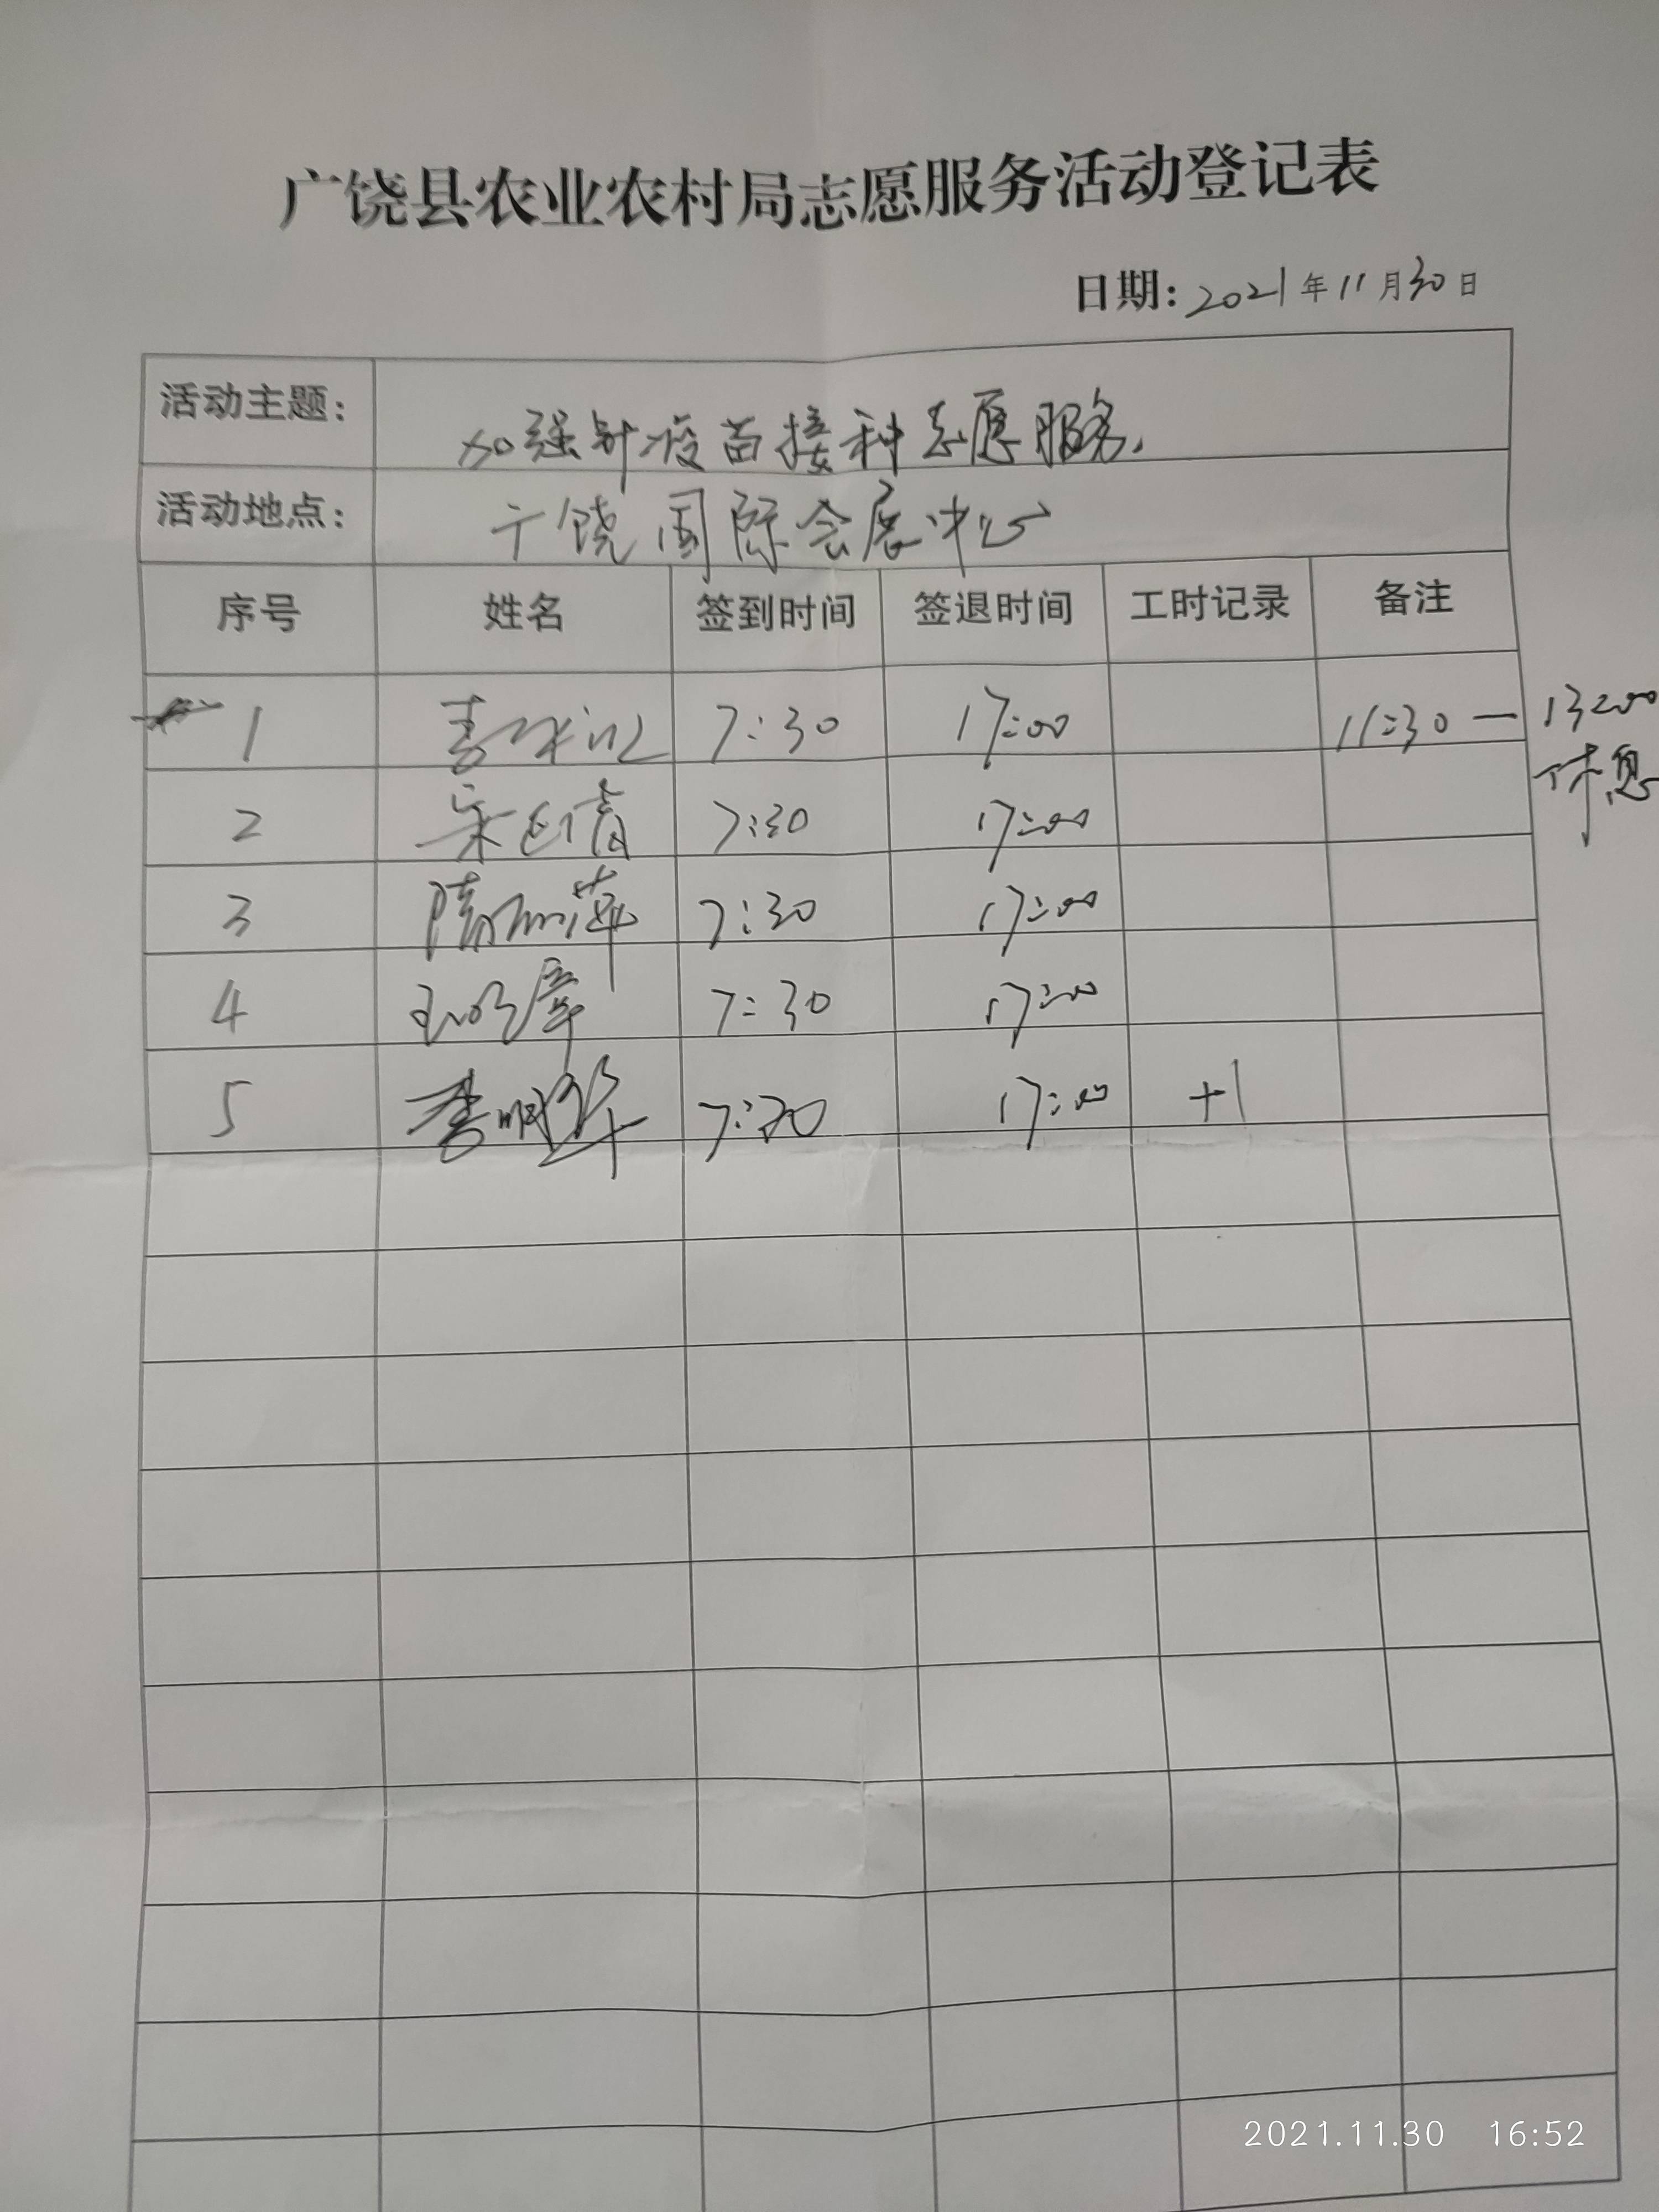 广饶县农业农村局志愿服务活动登记表
日期: 2021年11月30日
活动主题: 加强针疫苗接种志愿服务.
活动地点: 广饶国际会展中心
序号 姓名 签到时间 签退时间 工时记录 备注
1 7:30 17:00 11:30 — 13:00
休息
2 7:30 17:00
3 隋丽萍 7:30 17:00
4 7:30 17:00
5 李明华 7:30 17:00 +1
2021.11.30 16:52